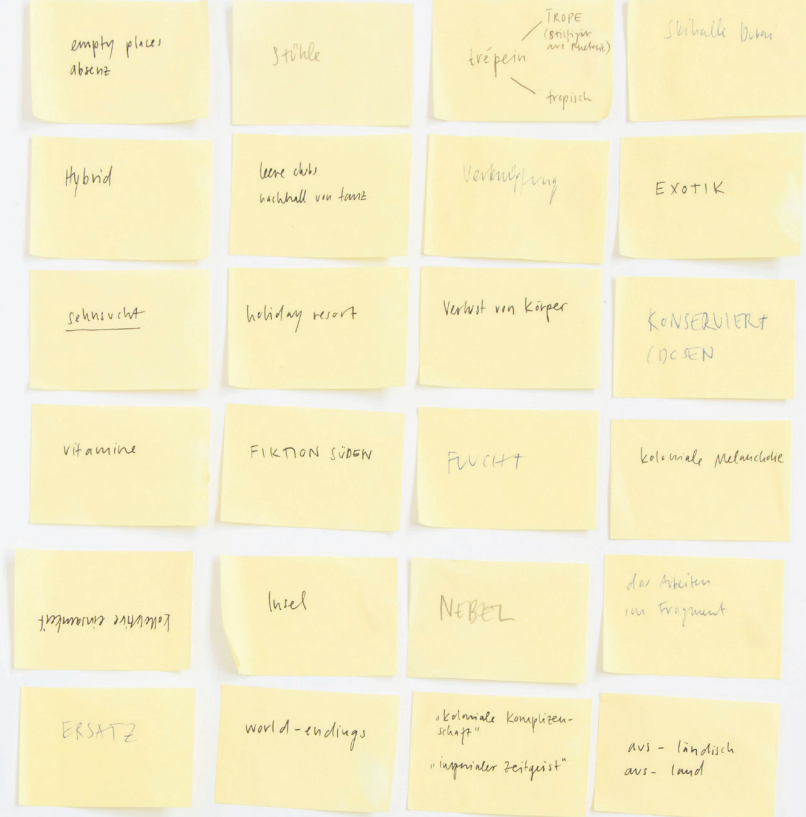 empty places
absenz
Stühle
trépein
TROPE
(Stilfigur
aus Rhetorik)
tropisch
Skihalle Dubai
Hybrid
leere clubs
nachhall von tanz
Verknüpfung
EXOTIK
sehnsucht
holiday resort
Verlust von Körper
KONSERVIERT
/DOSEN
vitamine
FIKTION SÜDEN
FLUCHT
koloniale Melancholie
kollektive einsamkeit
Insel
NEBEL
das Arbeiten
im Fragment
ERSATZ
world-endings
„koloniale Komplizen-
schaft"
„imperialer Zeitgeist"
aus - ländisch
aus - land